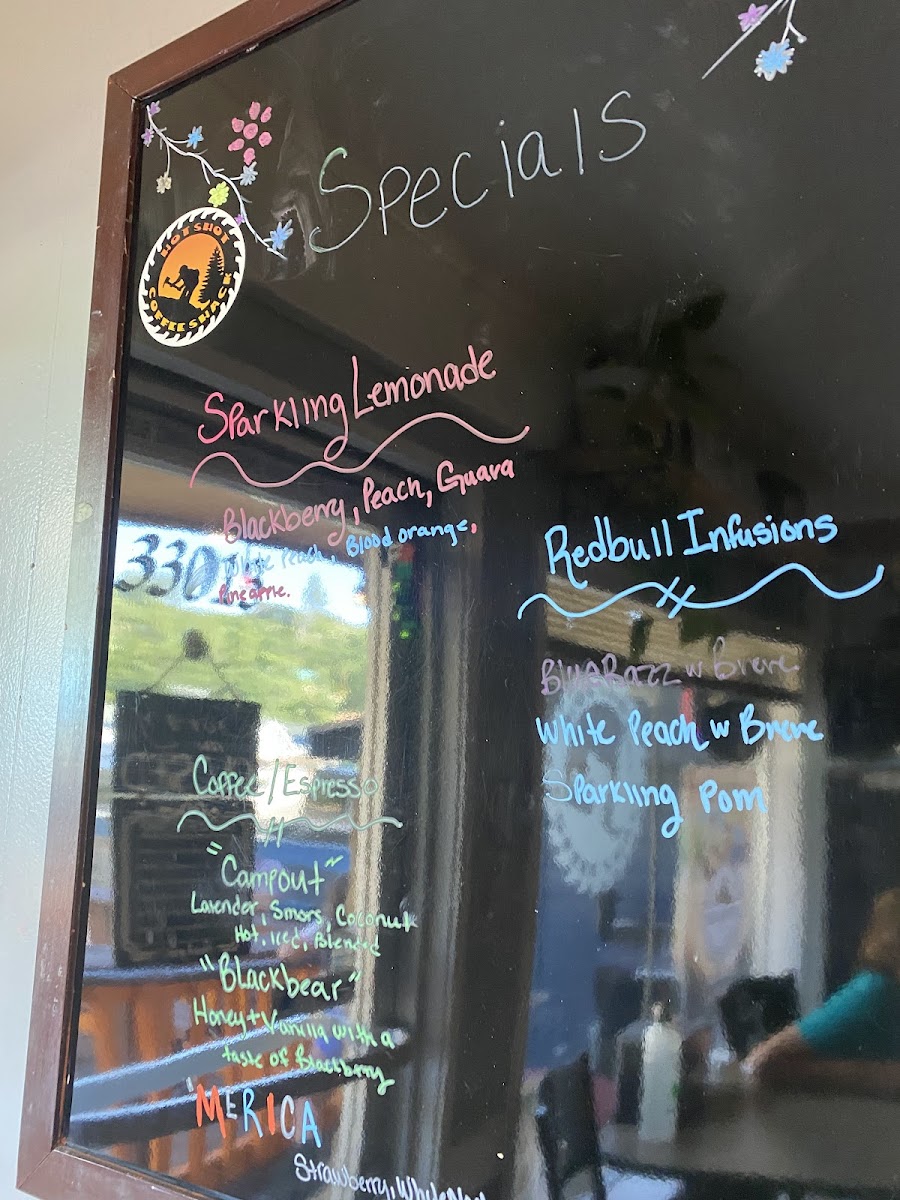 Specials
HOT SHOT
COFFEE SHACK
Sparkling Lemonade
Blackberry, Peach, Guava
White Peach, Blood orange,
Pineapple.
33013
Redbull Infusions
Blue Razz w Breve
White Peach w Breve
Sparkling Pom
Coffee/Espresso
"Campout"
Lavender, Smors, Coconut
Hot, Iced, Blended
"Blackbear"
Honey + Vanilla with a
taste of Blackberry
'MERICA
Strawberry,